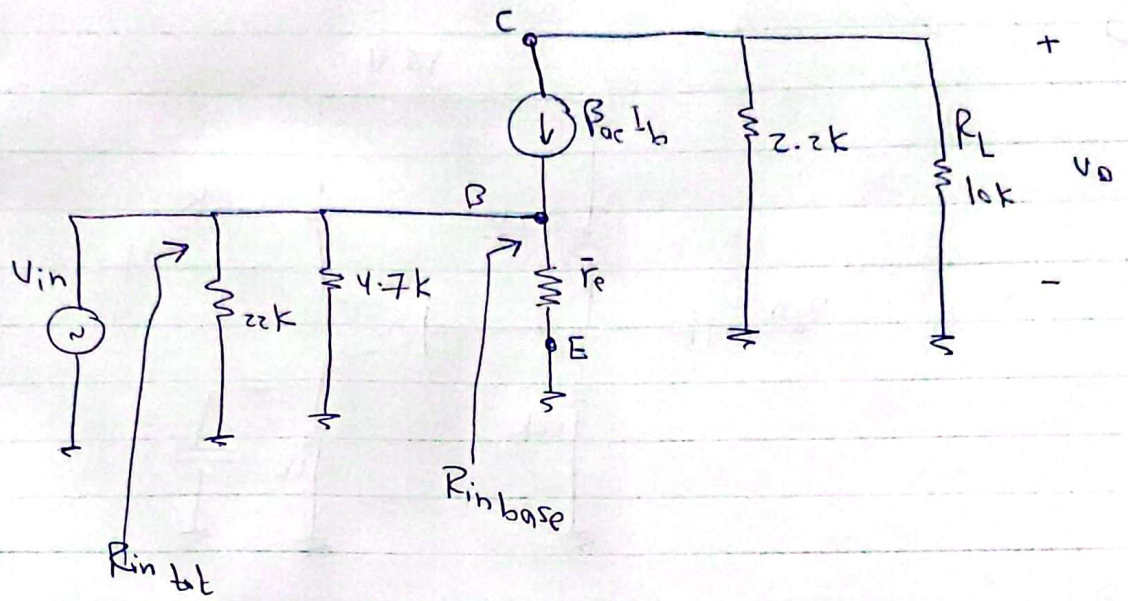 C
+
βac Ib
2.2K
RL
10K
Vo
B
Vin
~
22K
4.7K
r̄e
E
-
Rin base
Rin tot